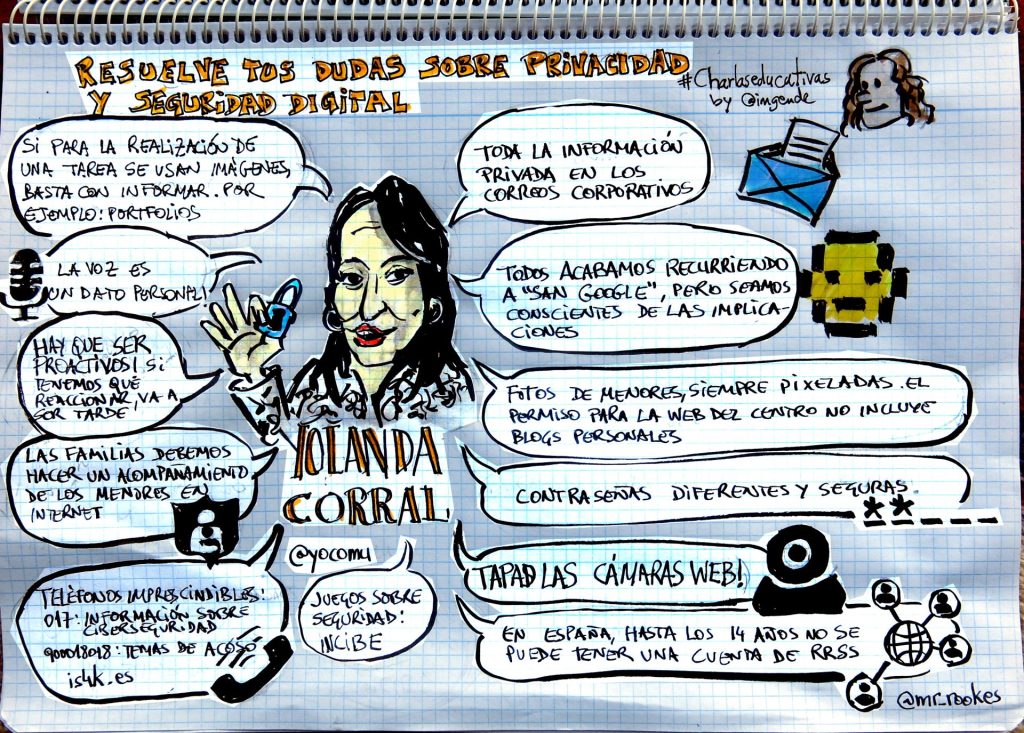 RESUELVE TUS DUDAS SOBRE PRIVACIDAD
Y SEGURIDAD DIGITAL
#Charlaseducativas
by @imgende
SI PARA LA REALIZACIÓN DE
UNA TAREA SE USAN IMÁGENES,
BASTA CON INFORMAR. POR
EJEMPLO: PORTFOLIOS
LA VOZ ES
UN DATO PERSONAL!
HAY QUE SER
PROACTIVOS! SI
TENEMOS QUE
REACCIONAR, VA A
SER TARDE,
LAS FAMILIAS DEBEMOS
HACER UN ACOMPAÑAMIENTO
DE LOS MENORES EN
INTERNET
TELÉFONOS IMPRESCINDIBLES:
017: INFORMACIÓN SOBRE
CIBERSEGURIDAD
900018018: TEMAS DE ACOSO
is4k.es
IOLANDA
CORRAL
@yocomu
JUEGOS SOBRE
SEGURIDAD:
INCIBE
TODA LA INFORMACIÓN
PRIVADA EN LOS
CORREOS CORPORATIVOS
TODOS ACABAMOS RECURRIENDO
A "SAN GOOGLE", PERO SEAMOS
CONSCIENTES DE LAS IMPLICA-
CIONES
FOTOS DE MENORES, SIEMPRE PIXELADAS. EL
PERMISO PARA LA WEB DEL CENTRO NO INCLUYE
BLOGS PERSONALES
CONTRASEÑAS DIFERENTES Y SEGURAS
**____
TAPAD LAS CÁMARAS WEB!
EN ESPAÑA, HASTA LOS 14 AÑOS NO SE
PUEDE TENER UNA CUENTA DE RRSS
@mr_rookes